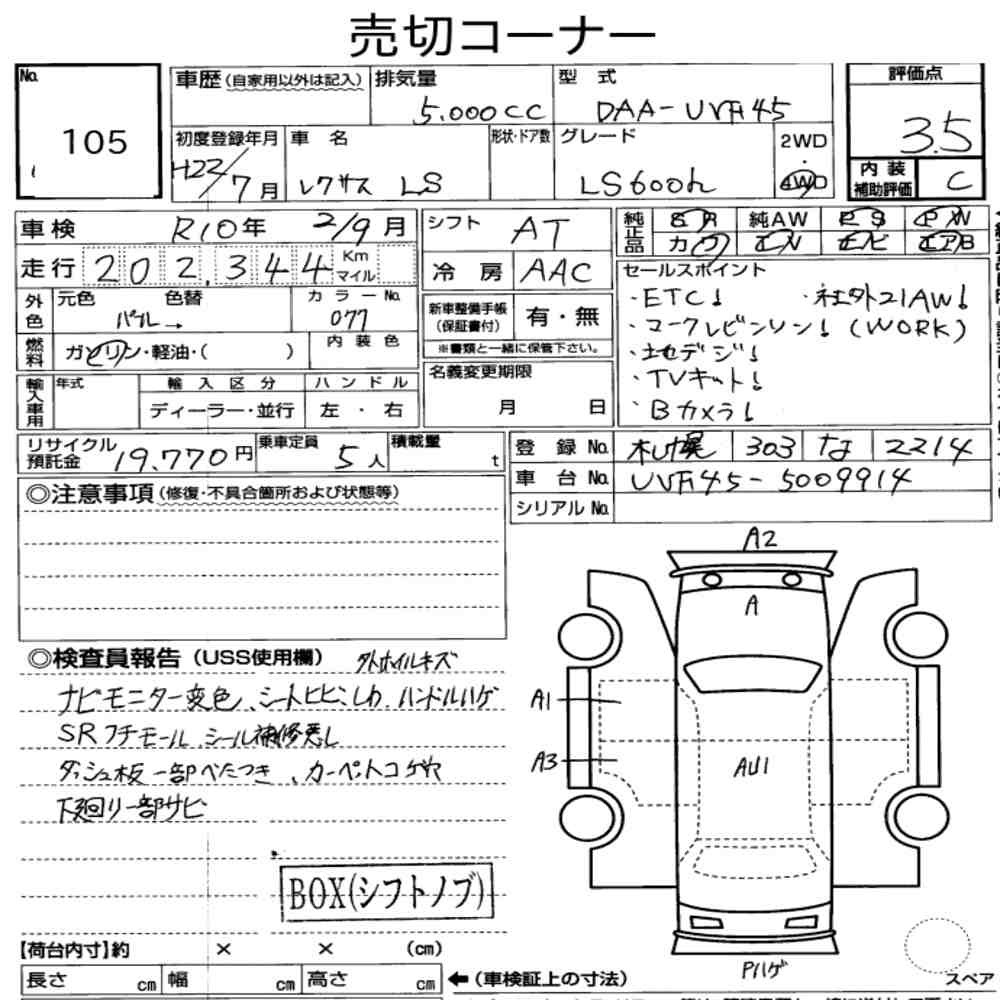 売切コーナー
No. 105
車歴(自家用以外は記入) 排気量 5.000CC 型式 DAA-UVF45
評価点 3.5
初度登録年月 H22/7月 車名 レクサス LS 形状・ドア数 グレード LS600h 2WD・4WD
内装補助評価 C
車検 R10年 2/9月 シフト AT
純正品 SR 純AW PS PW
カワ エV ナビ エアB
走行 202,344 Km マイル 冷房 AAC
セールスポイント
・ETC! ・社外21AW!
・マークレビンソン! (WORK)
・地デジ!
・TVキット!
・Bカメラ!
外色 元色 パール→ 色替 カラーNo. 077
新車整備手帳(保証書付) 有・無
※書類と一緒に保管下さい。
燃料 ガソリン・軽油・( ) 内装色
名義変更期限 月 日
輸入車用 年式 輸入区分 ハンドル
ディーラー・並行 左・右
リサイクル預託金 19.770円 乗車定員 5人 積載量 t
登録No. 札幌 303 な 2214
車台No. UVF45-5009914
シリアルNo.
◎注意事項(修復・不具合箇所および状態等)
A2
A
A1
A3
AU1
Pハゲ
スペア
◎検査員報告(USS使用欄) 外ホイルキズ
ナビモニター変色、シートヒビ、しわ、ハンドルハゲ
SRフチモール シール補修悪し
ダッシュ板一部べたつき、カーペットコゲヤ
下廻り一部サビ
BOX(シフトノブ)
【荷台内寸】約 × × (cm)
長さ cm 幅 cm 高さ cm ←(車検証上の寸法)